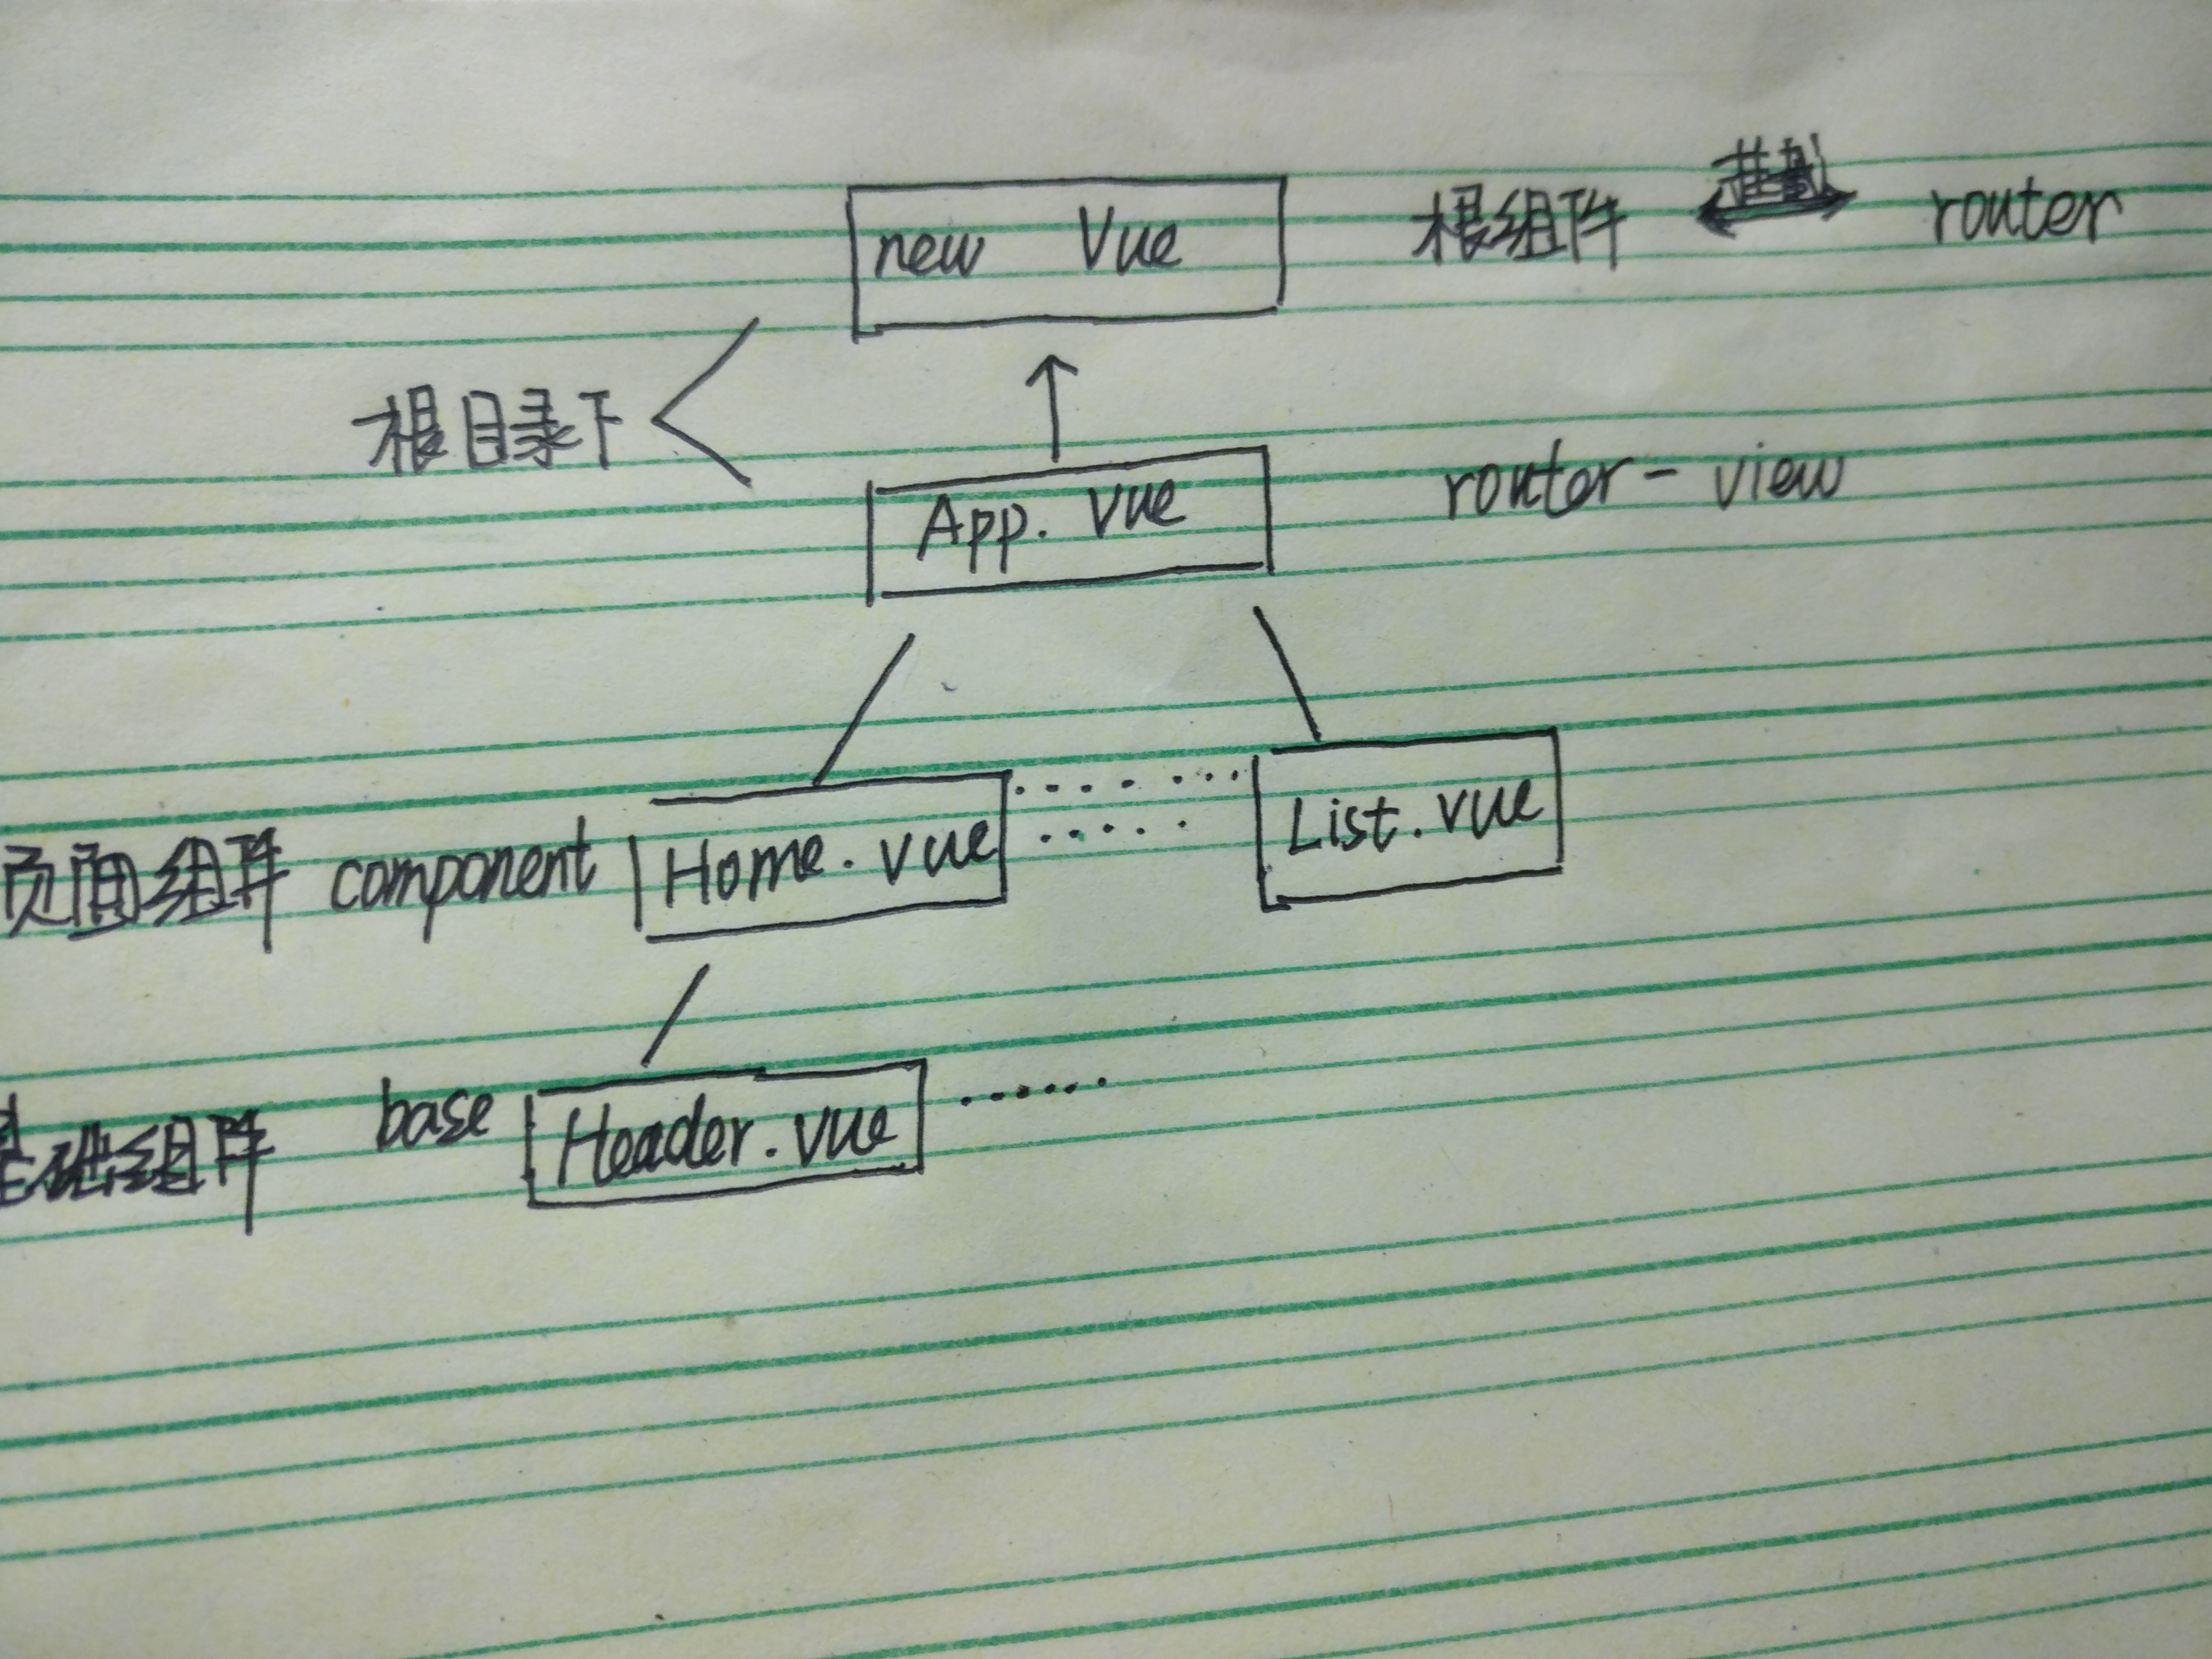 new Vue 根组件 router
根目录下
App. vue router - view
页面组件 component Home. vue List. vue
基础组件 base Header. vue